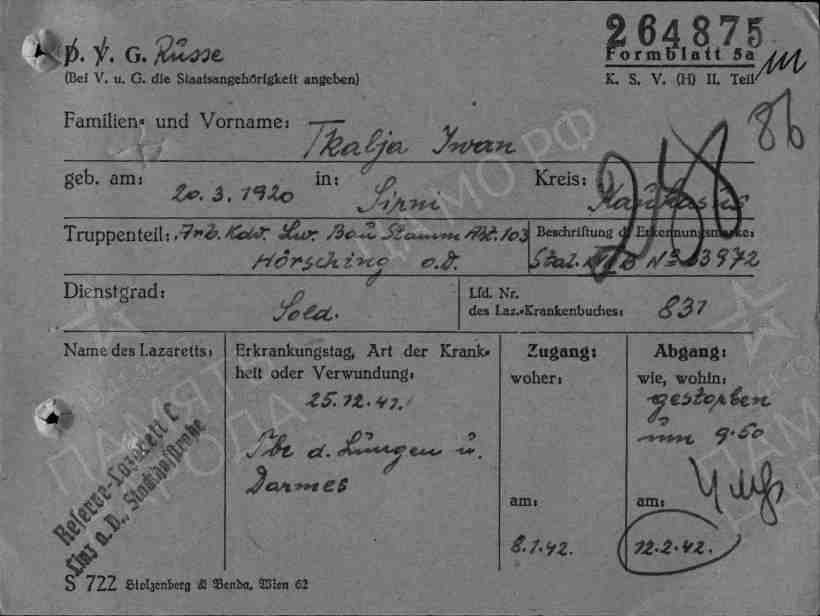 264875
D. V. G. Russe
Formblatt 5a
(Bei V. u. G. die Staatsangehörigkeit angeben)
K. S. V. (H) II. Teil
86
Familien- und Vorname: Tkalja Iwan
geb. am: 20.3.1920 in: Sirni Kreis: Kaukasus
Truppenteil: Arb. Kdo. Lw. Bau Stamm Abt. 103
Hörsching o.d.
Beschriftung d. Erkennungsmarke:
Stal. D N°
Dienstgrad: Sold.
Lfd. Nr.
des Laz.-Krankenbuches: 831
Name des Lazaretts:
Reserve-Lazarett
Linz a. D.,
Erkrankungstag, Art der Krank-
heit oder Verwundung:
25.12.41.
Tbc d. Lungen u.
Darmes
Zugang:
woher:
am:
8.1.42.
Abgang:
wie, wohin:
gestorben
um 9.50
am:
12.2.42.
S 722 Stolzenberg & Benda, Wien 62
ПАМЯТЬ
НАРОДА
ПАМО РФ